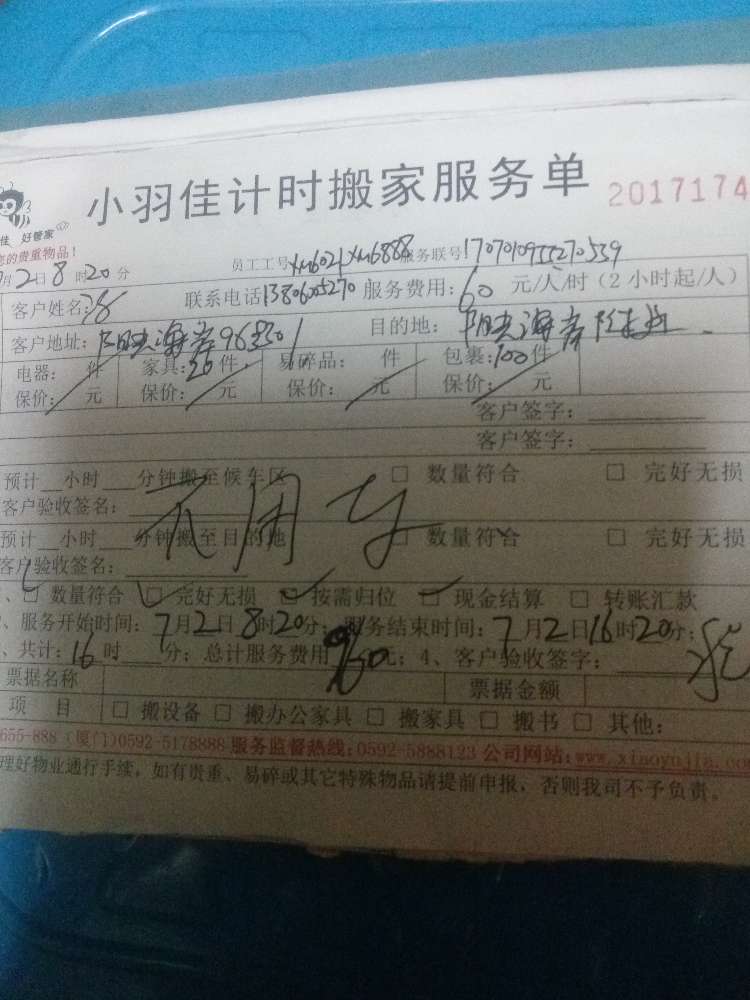 小羽佳计时搬家服务单 2017174
佳 好管家
您的贵重物品!
员工工号XM6021 XM6888服务联号1707010955270539
月2日8时20分
客户姓名: 联系电话13806005270 服务费用:60元/人/时(2小时起/人)
客户地址:阳光海岸96 目的地:阳光海岸
电器: 件 家具:20件 易碎品: 件 包裹:100件
保价: 元 保价: 元 保价: 元 保价: 元
客户签字:
客户签字:
预计 小时 分钟搬至候车区 □ 数量符合 □ 完好无损
客户验收签名:
不用车
预计 小时 分钟搬至目的地 □ 数量符合 □ 完好无损
客户验收签名:
、□ 数量符合 □ 完好无损 □ 按需归位 □ 现金结算 □ 转账汇款
、服务开始时间:7月2日8时20分;服务结束时间:7月2日16时20分;
、共计:16时 分;总计服务费用960元;4、客户验收签字:
票据名称 票据金额
项 目 □ 搬设备 □ 搬办公家具 □ 搬家具 □ 搬书 □ 其他:
655-888 (厦门)0592-5178888 服务监督热线:0592-5888123 公司网站:www.xiaoyujia.co
理好物业通行手续,如有贵重、易碎或其它特殊物品请提前申报,否则我司不予负责。